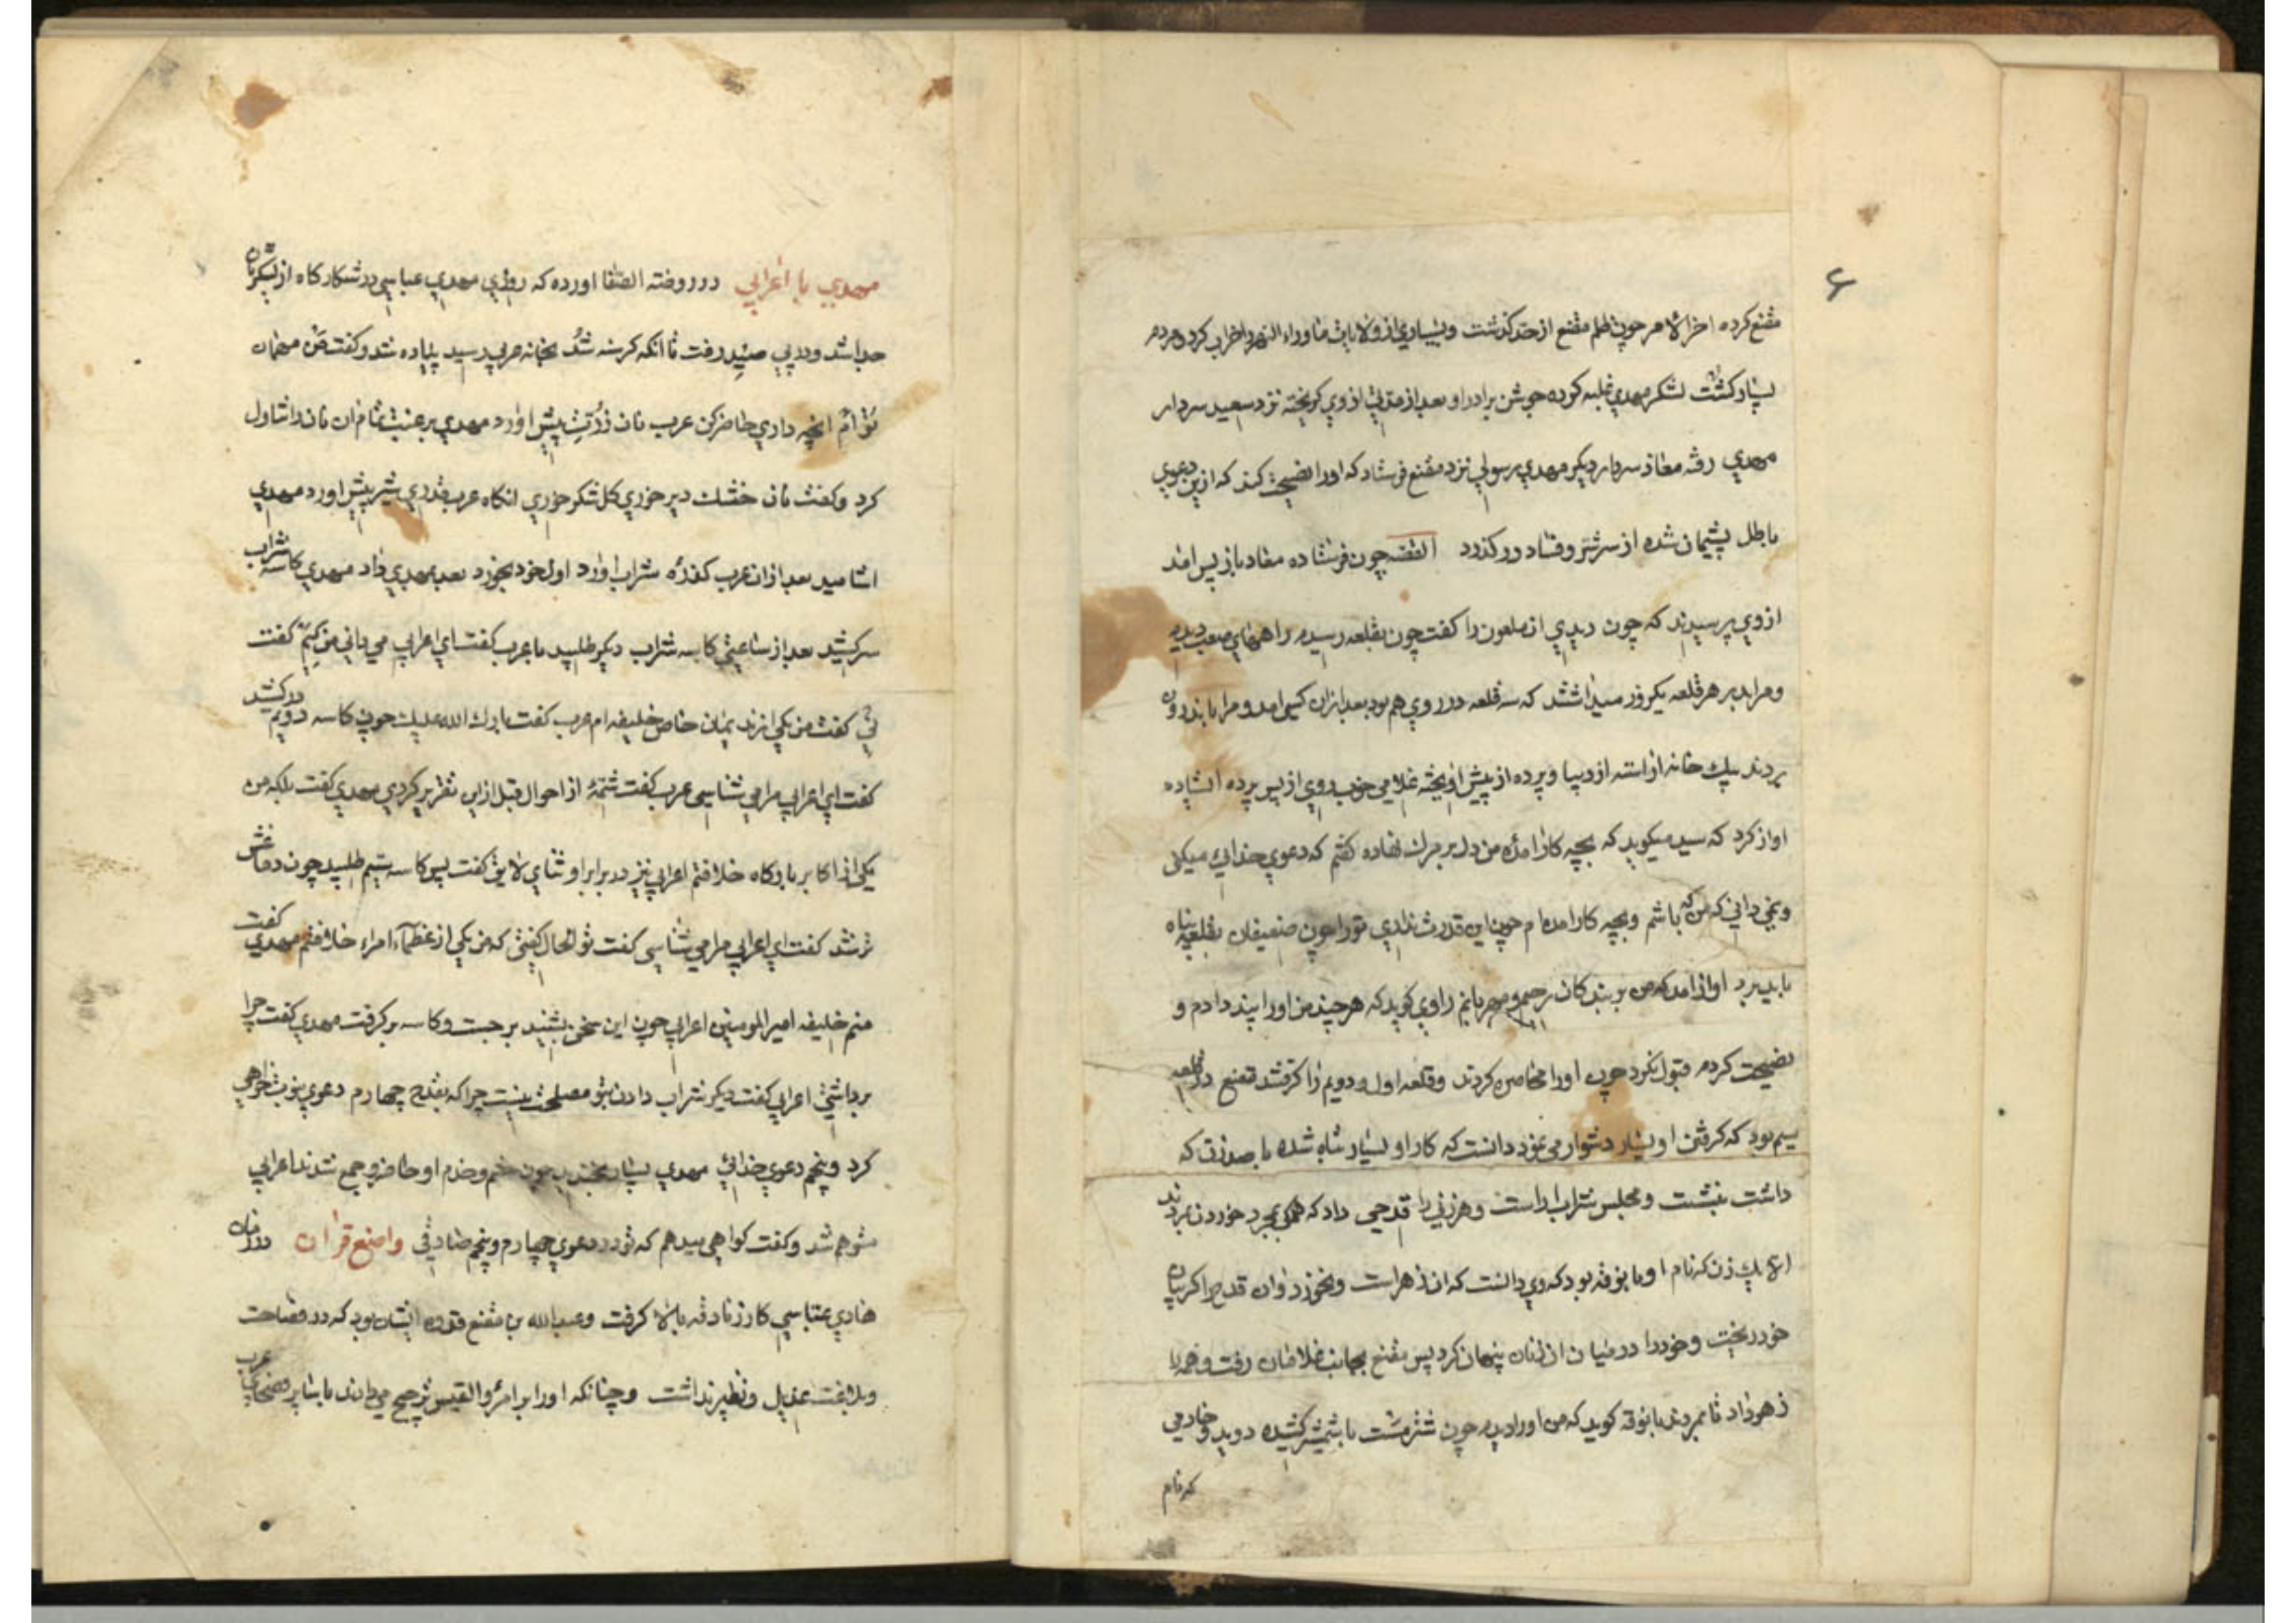 ۶
مقنع کرده اخر الامر چون ظلم مقنع از حد کذشت و بسیاری از ولایات ماوراء النهر را خراب کرد و مردم
بسیار کشت لشکر مهدی غلبه کرده جوشن برادر او بعد از مدتی از وی کریخته نزد سعید سردار
مهدی رفته معاذ سردار دیکر مهدی رسولی نزد مقنع فرستاد که او را نصیحت کند که ازین دعوی
باطل پشیمان شده از سر شر و فساد در کذرد القصه چون فرستاده معاد باز پس امد
از وی پرسیدند که چون دیدی از ملعون را کفت چون بقلعه رسیدم راههای صعب دیدم
و مرا بدر هر قلعه یکروز میداشتند که سه قلعه در روی هم بود بعد ازان کسی امد و مرا باندرون
بردند بیک خانه اراسته از دیبا و پرده از پیش اویخته غلامی خوب روی از پس پرده استاده
اواز کرد که سید میکوید که بچه کار امدهٔ من دل بر مرک نهاده کفتم که دعوی خدایی میکنی
و نمی دانی که من که باشم و بچه کار امده ام چون این قدرت نداری تو را چون ضعیفان بقلعه پناه
باید برد اواز امد که من بر بندکان رحیم و مهربانم راوی کوید که هر چند من او را پند دادم و
نصیحت کردم قبول نکرد چون او را محاصره کردند و قلعه اول و دویم را کرفتند مقنع در قلعه
سیم بود که کرفتن او بسیار دشوار می نمود دانست که کار او بسیار تباه شده با صد زن که
داشت بنشست و مجلس شراب اراست و هر زنی را قدحی داد که همکی بمجرد خوردن بمردند
الا یک زن که نام او بانوقه بود که وی دانست که ان زهر است و نخورد و ان قدح را کریبان
خود ریخت و خود را در میان ان زنان پنهان کرد پس مقنع بجانب غلامان رفت و همه را
زهر داد تا بمردند بانوقه کوید که من او را دیدم چون شتر مست با شمشیر کشیده دوید و خادمی
که نام
مهدی با اعرابی در روضته الصفا اورده که روزی مهدی عباسی در شکارکاه از لشکریان
جدا شد و در پی صید رفت تا انکه کرسنه شد بخیانه عربی رسید پیاده شد و کفت من مهمان
تو ام انچه داری حاضر کن عرب نان ذرت پیش اورد مهدی برغبت تمام ان نان را تناول
کرد و کفت نان خشک دیر خوری کل شکر خوری انکاه عرب قدری شیر پیش اورد مهدی
اشامید بعد ازان عرب کوزهٔ شراب اورد اول خود بخورد بعد بمهدی داد مهدی کاسه شراب
سر کشید بعد از ساعتی کاسه شراب دیکر طلبید با عرب کفت ای اعرابی می دانی من کیم کفت
نی کفت من یکی از ندیمان خاص خلیفه ام عرب کفت بارک الله علیک چون کاسه دویم در کشید
کفت ای اعرابی مرا می شناسی عرب کفت شمهٔ از احوال قبل ازین تقریر کردی مهدی کفت بلکه من
یکی از اکابر بارکاه خلافتم اعرابی نیز در برابر او ثنای لایق کفت پس کاسه سیم طلبید چون دماغش
تر شد کفت ای اعرابی مرا می شناسی کفت تو الحال کفتی که من یکی از عظمآء امراء خلافتم مهدی کفت
منم خلیفه امیر المومنین اعرابی چون این سخن بشنید برجست و کاسه بر کرفت مهدی کفت چرا
برداشتی اعرابی کفت دیکر شراب دادن بتو مصلحت نیست چرا که بقدح چهارم دعوی نبوت خواهی
کرد و پنجم دعوی خدائی مهدی بسیار بخندید چون خشم و خدم او حاضر و جمع شدند اعرابی
متوهم شد و کفت کواهی میدهم که تو در دعوی چهارم و پنجم صادقی واضع قران در زمان
هادی عباسی کار زنادقه بالا کرفت و عبدالله بن مقنع قدوه ایشان بود که در فصاحت
و بلاغت عدیل و نظیر نداشت و چنانکه او را بر امرؤ القیس ترجیح می دادند با سایر فصحای عرب